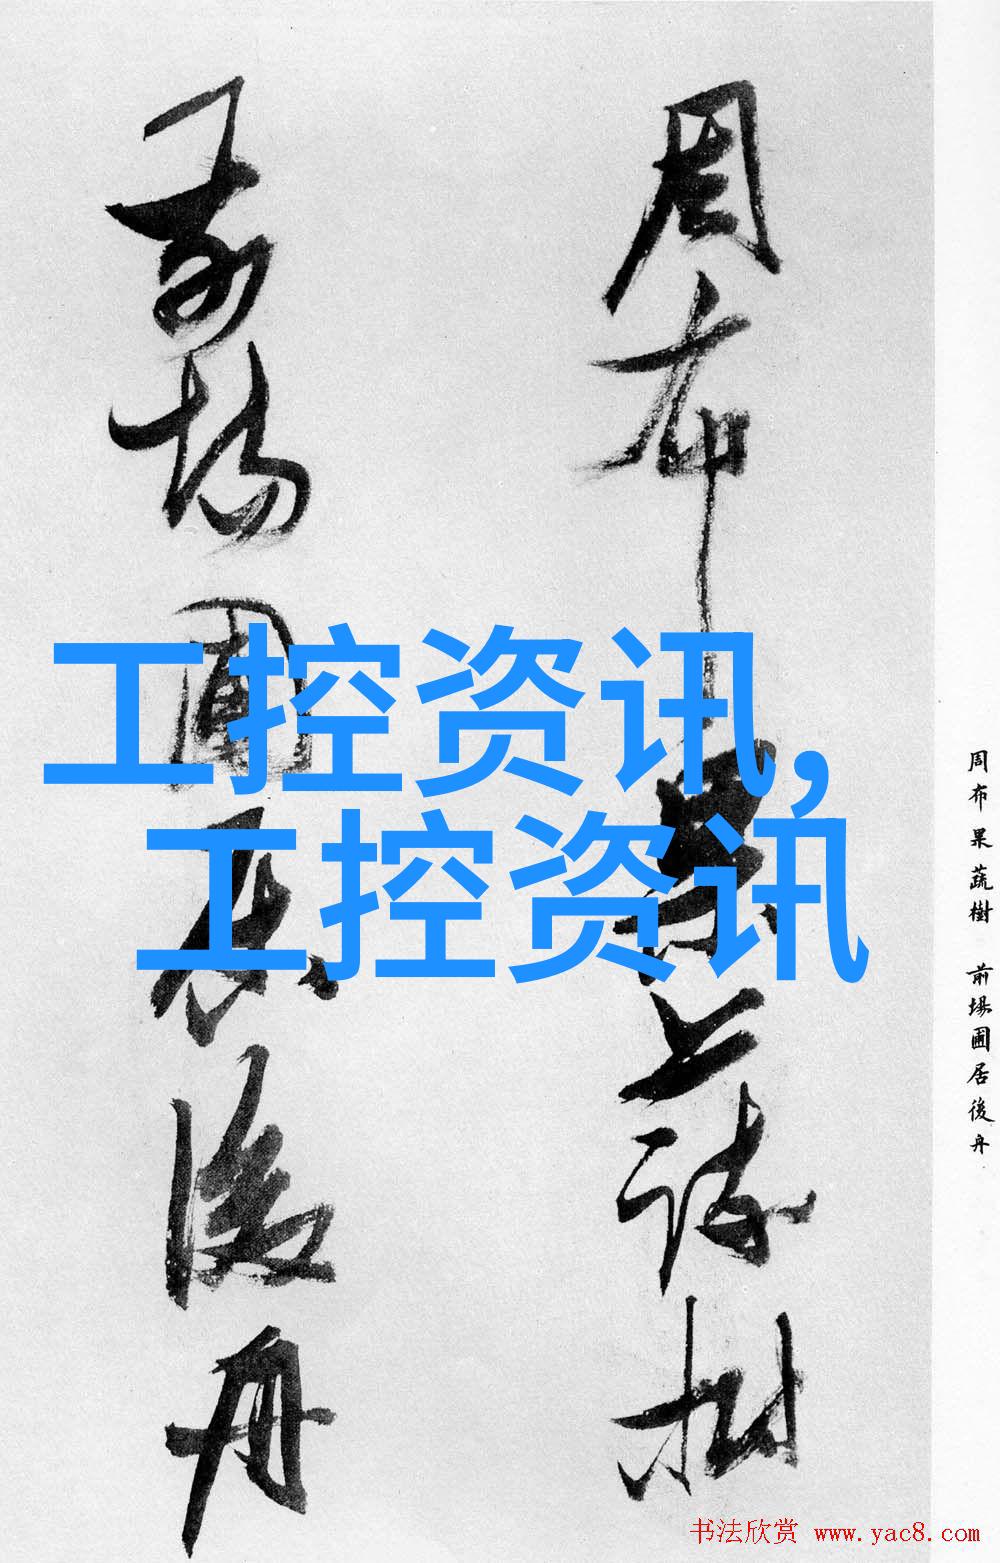 周布果蔬樹
前場圃居後舟
工控资讯,
工控资讯
周布果蔬樹 前場圃居後舟
书法欣赏 www.yac8.com